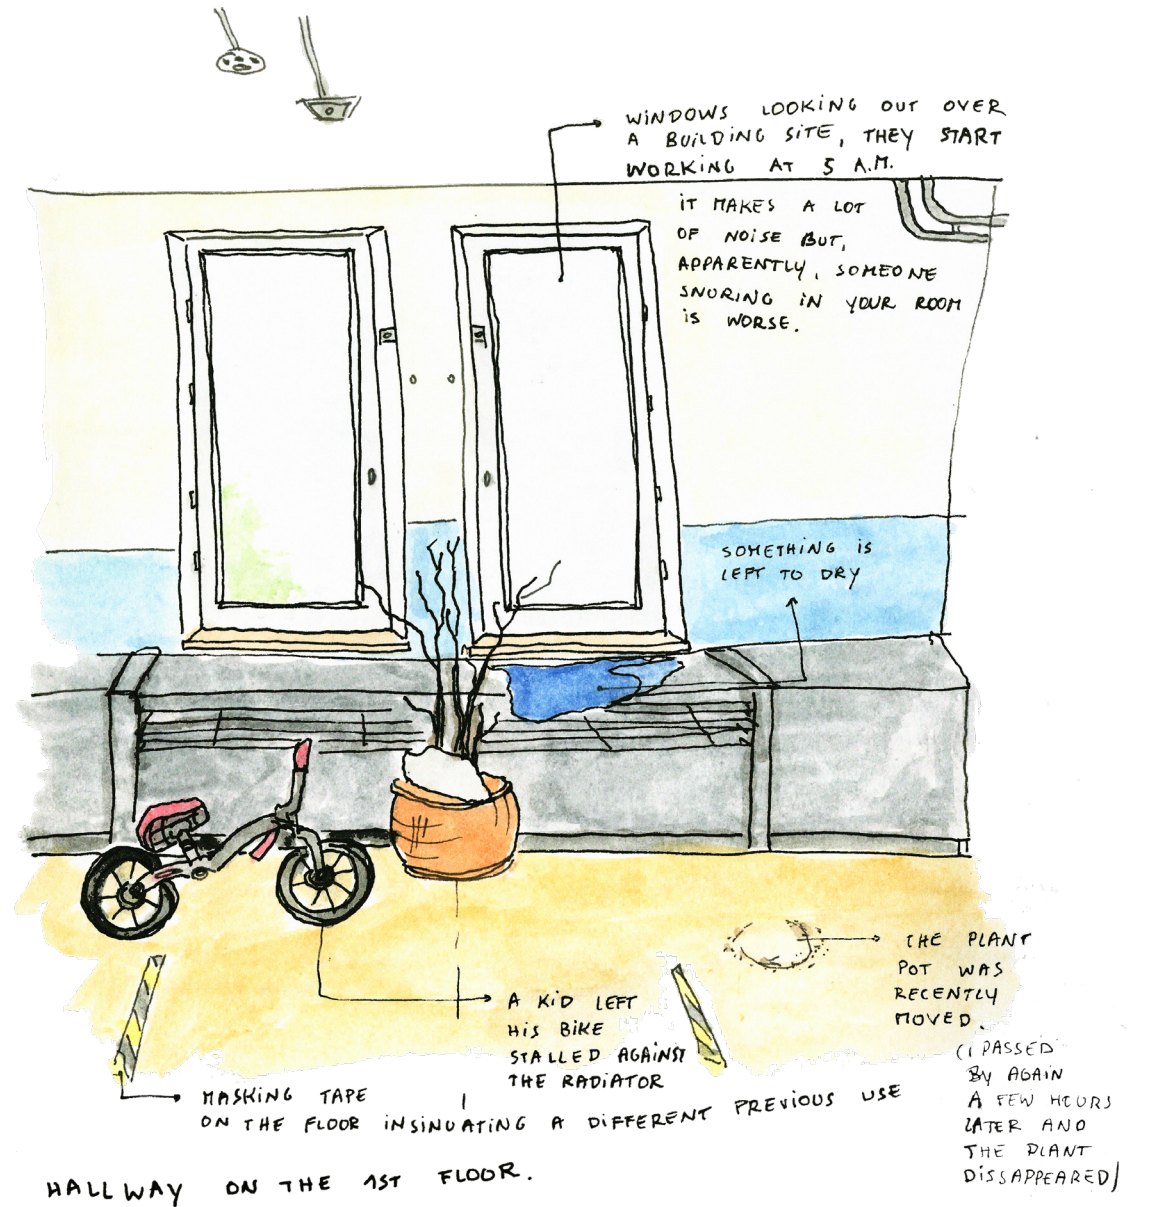 WINDOWS LOOKING OUT OVER
A BUILDING SITE, THEY START
WORKING AT 5 A.M.
IT MAKES A LOT
OF NOISE BUT,
APPARENTLY, SOMEONE
SNORING IN YOUR ROOM
IS WORSE.
SOMETHING IS
LEFT TO DRY
THE PLANT
POT WAS
RECENTLY
MOVED.
(I PASSED
BY AGAIN
A FEW HOURS
LATER AND
THE PLANT
DISSAPPEARED)
A KID LEFT
HIS BIKE
STALLED AGAINST
THE RADIATOR
MASKING TAPE
ON THE FLOOR INSINUATING A DIFFERENT PREVIOUS USE
HALLWAY ON THE 1ST FLOOR.